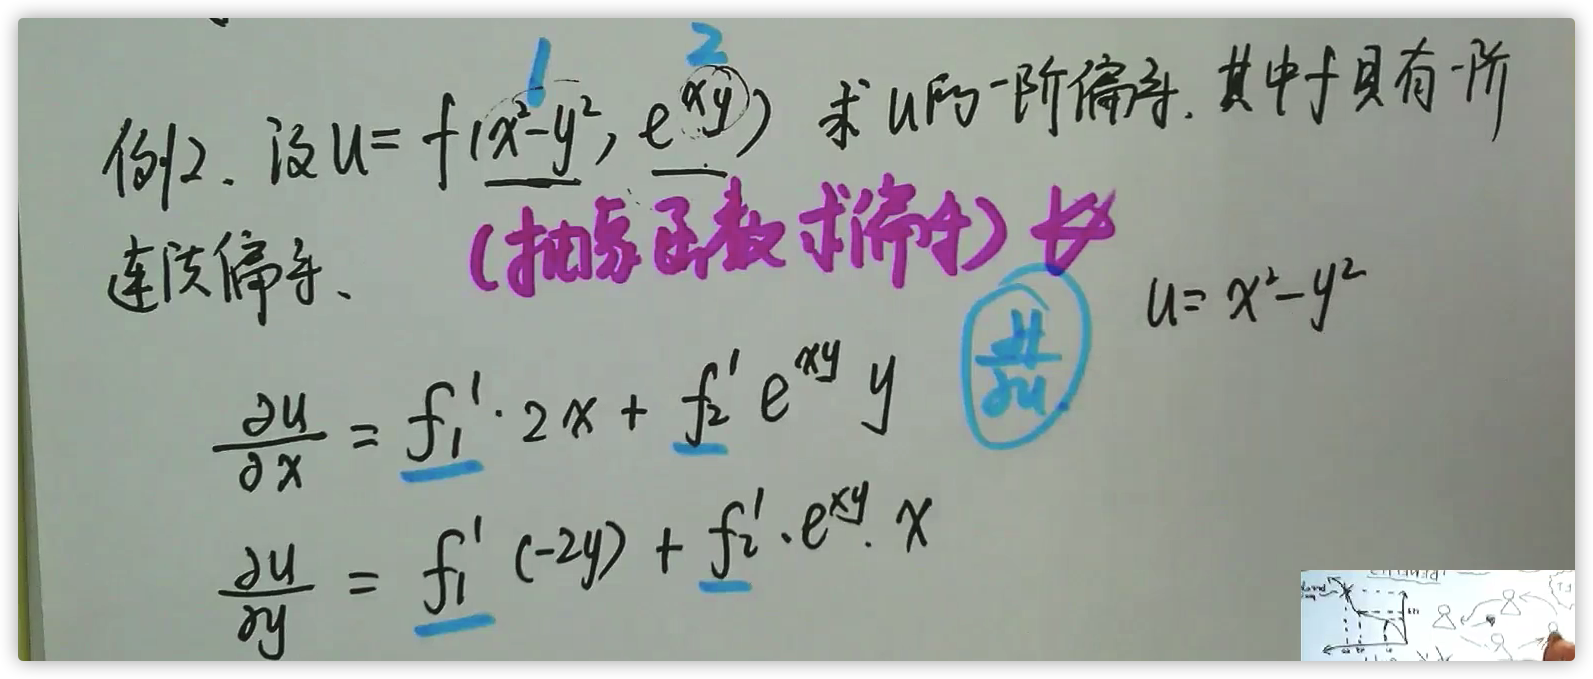 1 2
例2. 设 u = f(x²-y², e^{xy}) 求 u 的一阶偏导. 其中 f 具有一阶
连续偏导.
(抽象函数求偏导)
u = x²-y²
∂u/∂x = f₁' · 2x + f₂' e^{xy} y
∂u/∂y = f₁' (-2y) + f₂' · e^{xy} · x